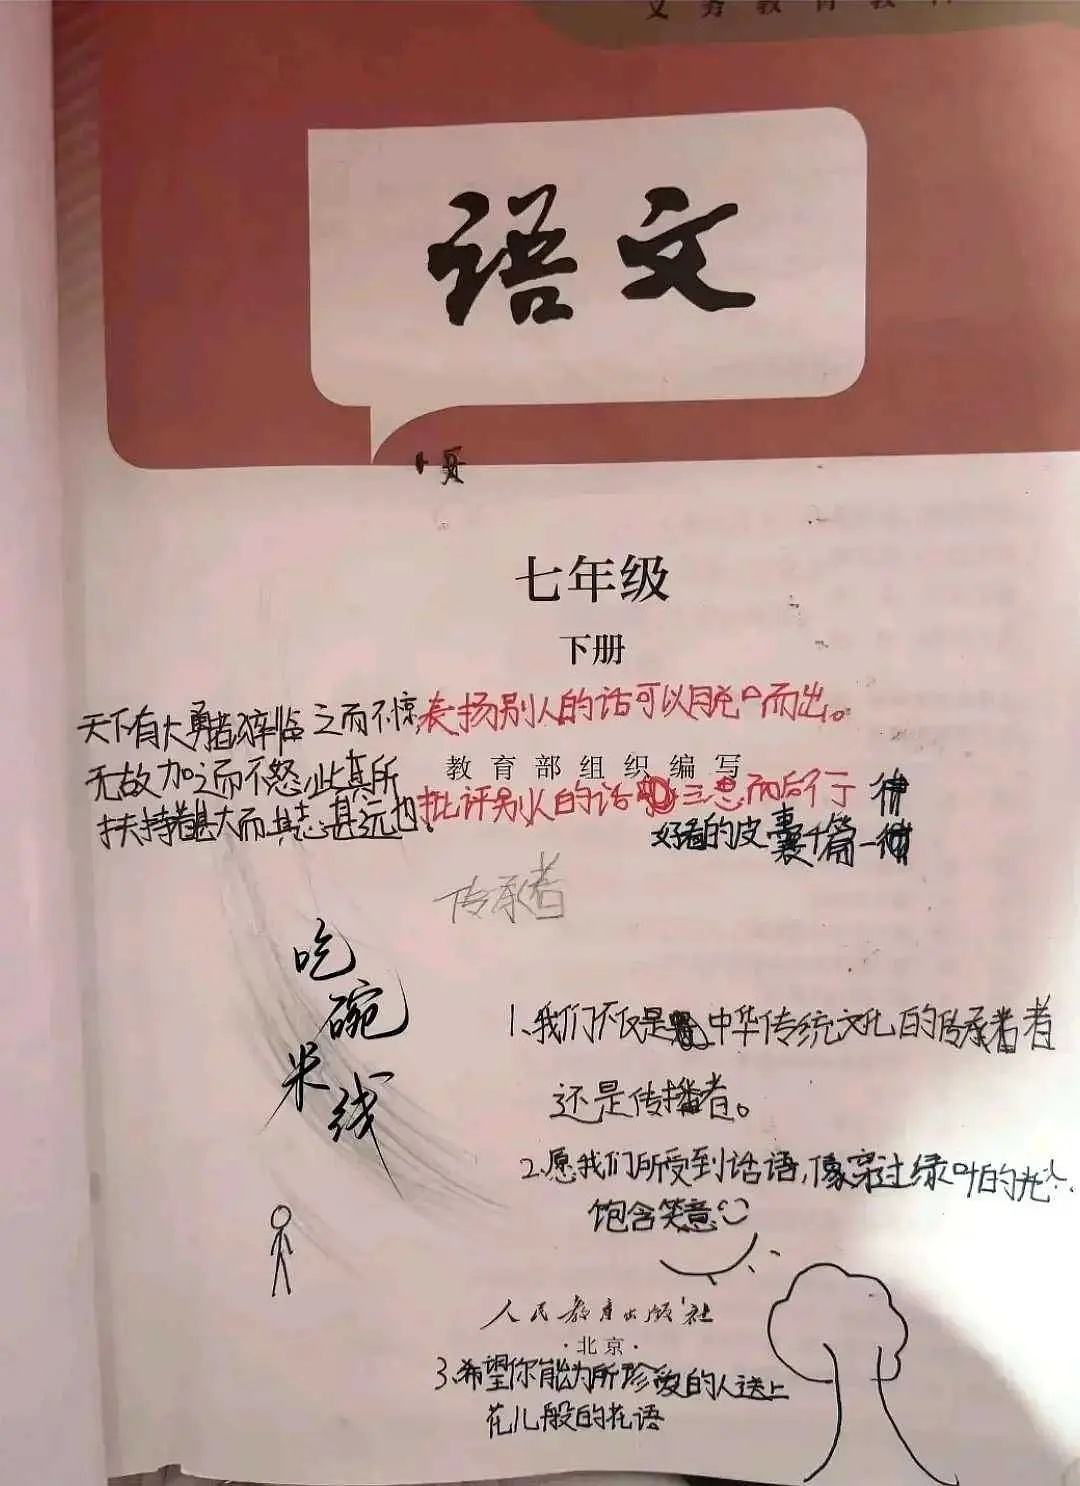 义务教育教科
语文
七年级
下册
天下有大勇者,猝临之而不惊,
无故加之而不怒,此其所
扶持者甚大而其志甚远也。
表扬别人的话可以脱口而出。
教育部组织编写
批评别人的话三思而后行
律
好看的皮囊千篇一律
传承者
吃碗米线
1.我们不仅是中华传统文化的传承者者
还是传播者。
2.愿我们所受到话语,像穿过绿叶的光
饱含笑意
人民教育出版社
·北京·
3.希望你能为所珍爱的人送上
花儿般的花语